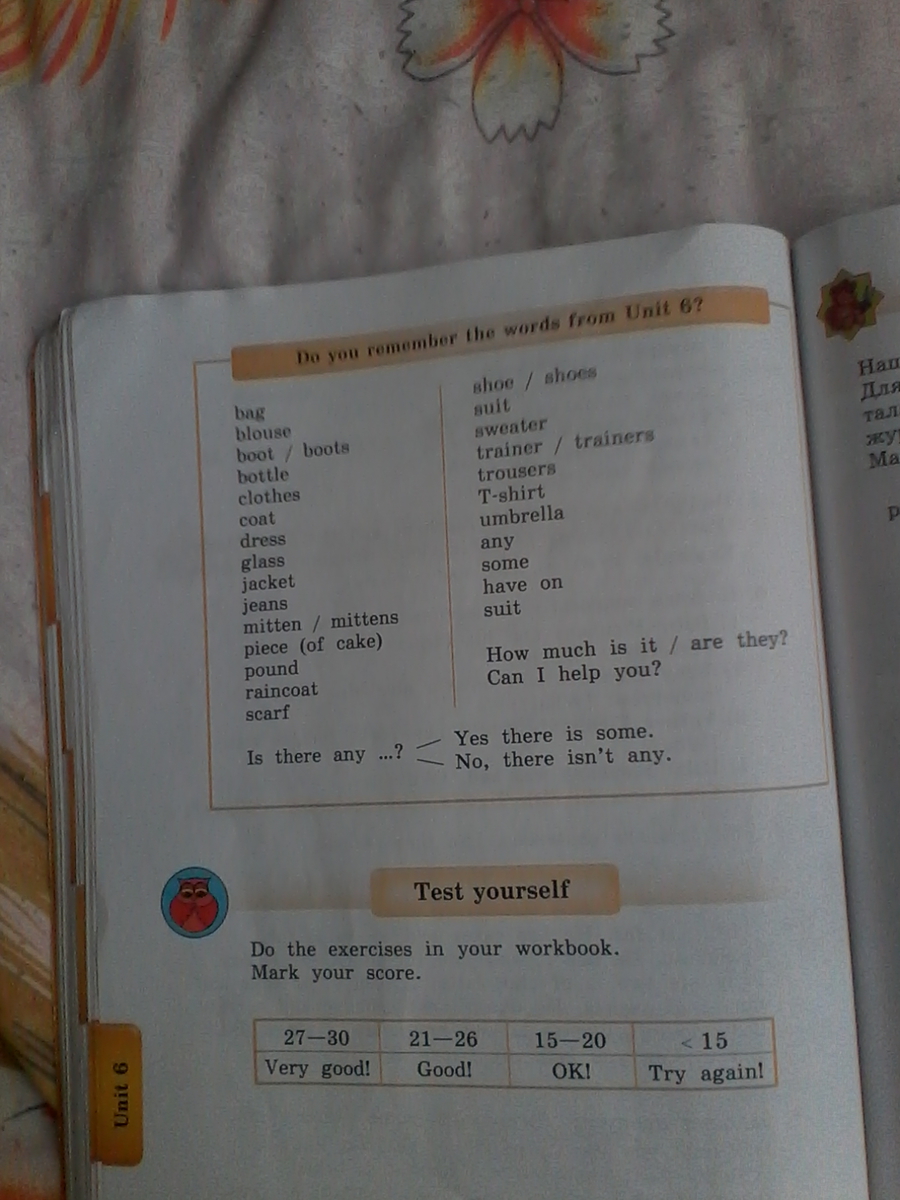 Do you remember the words from Unit 6?
bag
blouse
boot / boots
bottle
clothes
coat
dress
glass
jacket
jeans
mitten / mittens
piece (of cake)
pound
raincoat
scarf
shoe / shoes
suit
sweater
trainer / trainers
trousers
T-shirt
umbrella
any
some
have on
suit
How much is it / are they?
Can I help you?
Is there any ...?
Yes there is some.
No, there isn't any.
Test yourself
Do the exercises in your workbook.
Mark your score.
27—30 21—26 15—20 < 15
Very good! Good! OK! Try again!
Unit 6
Для